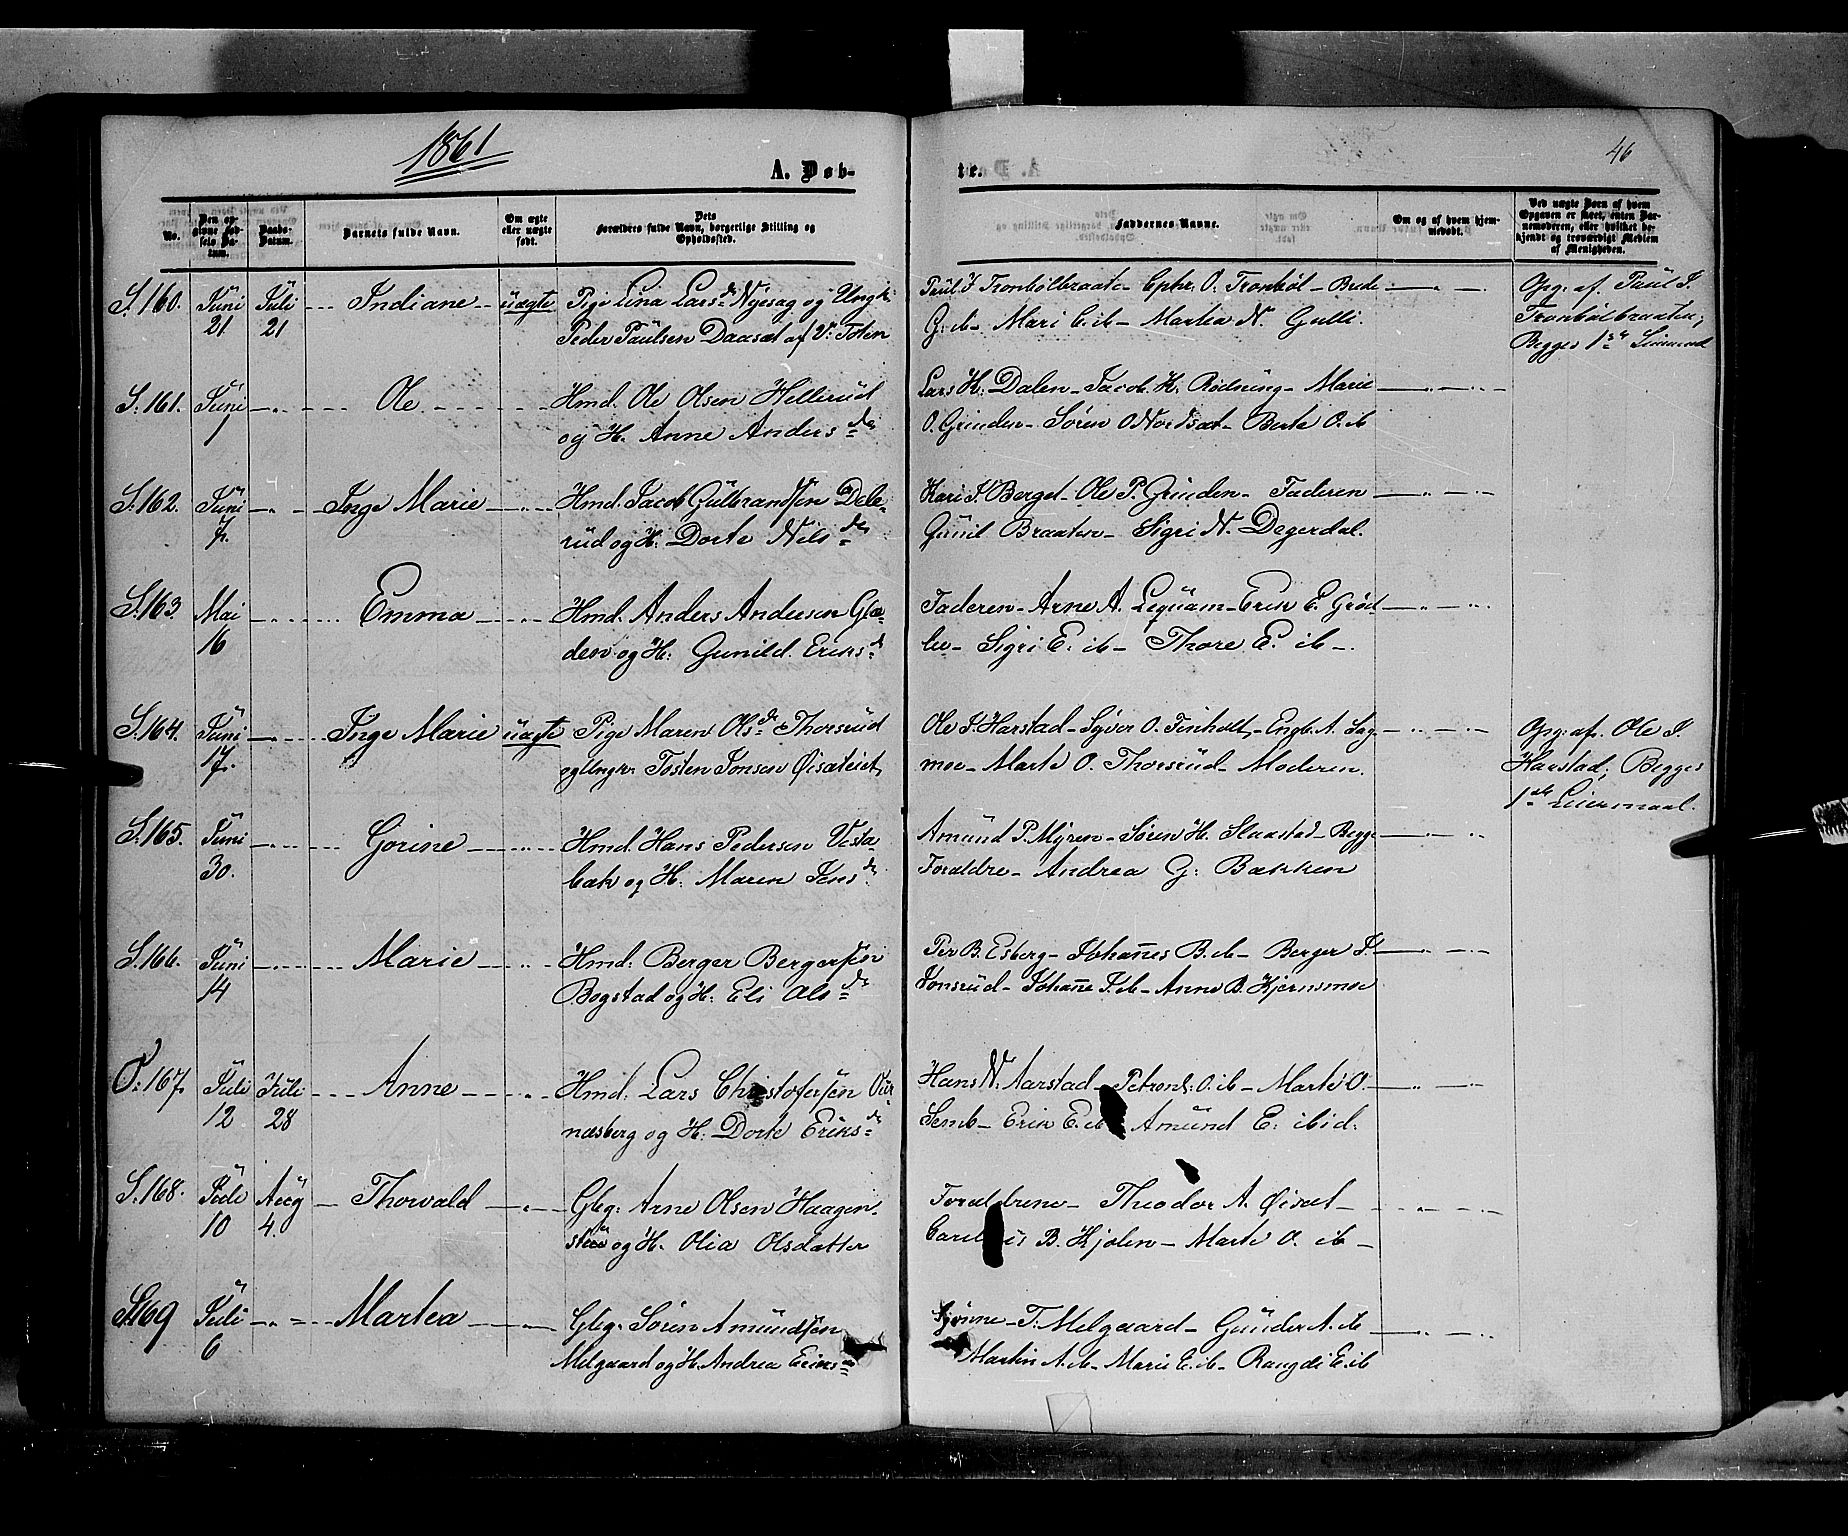 1861
A. Døb-
No.
Den opgivne Fødsels Datum.
Daabs-Datum.
Barnets fulde Navn.
Om ægte eller uægte født.
Dets Forældres fulde Navn, borgerlige Stilling og Opholdssted.
S. 160. Juni 21 Juli 21 Indiane uægte Pige Lina Larsd. Nyesag og Ungk:
Peder Paulsen Daasæt af V. Toten
S. 161. Juni 1 Ole Hmd. Ole Olsen Hellerud
og H. Anne Andersdr
S. 162. Juni 7. Inge Marie Hmd. Jacob Gulbrandsen Dele-
rud og H. Dorte Nilsdr
S. 163. Mai 16 Emma Hmd. Anders Andersen Glæ-
den og H: Gunild Eriksd
S. 164. Juni 17. Inge Marie uægte Pige Maren Olsd. Thorsrud
og Ungk: Tosten Jonsen Øisæteiet
S. 165. Juni 30. Gorine Hmd. Hans Pedersen Vesta-
bak og H. Maren Jensdr
S. 166. Juni 14 Marie Hmd. Berger Bergersen
Bogstad og H: Eli Olsdr
O: 167. Juli 12 Juli 28 Anne Hmd. Lars Christofersen
næsberg og H: Dorte Eriksdr
S. 168. Juli 10 Aug 4. Thorvald Gbg: Arne Olsen Haagen-
stue og H. Olia Olsdatter
S. 169 Juli 6 Martea Gbg. Søren Amundsen
Melgaard og H. Andrea Eriks
te.
46
Faddernes Navne.
Om og af hvem hjemmedøbt.
Ved uægte Børn af hvem Opgaven er skeet, enten Barnemoderen, eller hvilket bekjendt og troværdigt Medlem af Menigheden.
Paul J. Tronbølbraate - Ephr. O. Tronbøl - Brede
G. ib - Mari C. ib - Martea N. Gulli.
Opg: af. Paul J.
Tronbølbraaten;
Begges 1ste
Lars H: Dalen - Jacob H. Rødning - Marie
O. Grinden - Søren O Nordsæt - Berte O. ib
Kari J. Berget - Ole P. Grinden - Faderen
Gunil Braaten - Sigri N. Degerdal.
Faderen - Arne A. Lequam - Erik E. Grød
lie - Sigri E. ib - Thore E. ib -.
Ole J. Harstad - Syver O. Finholt - Engb. A. Sag-
moe - Marte O. Thorsrud - Moderen.
Opg: af. Ole J.
Harstad; Begges
1ste Leiermaal.
Amund P. Myren - Søren H. Slaastad - Begge
Forældre - Andrea G: Bakken
Per B. Esberg - Johannes B. ib - Berger J.
Tonsrud - Johanne J. ib - Anne B. Kjernsmoe
Hans N. Aarstad - Petron: O. ib - Marte O.
Semb - Erik E. ib Amund E: ibid:
Forældrene - Theodor A. Øisæt -
B. Kjølen - Marte O. ib -
T. Melgaard - Gunder A. ib
Martin A. ib - Marie E. ib - Rangdi E. ib